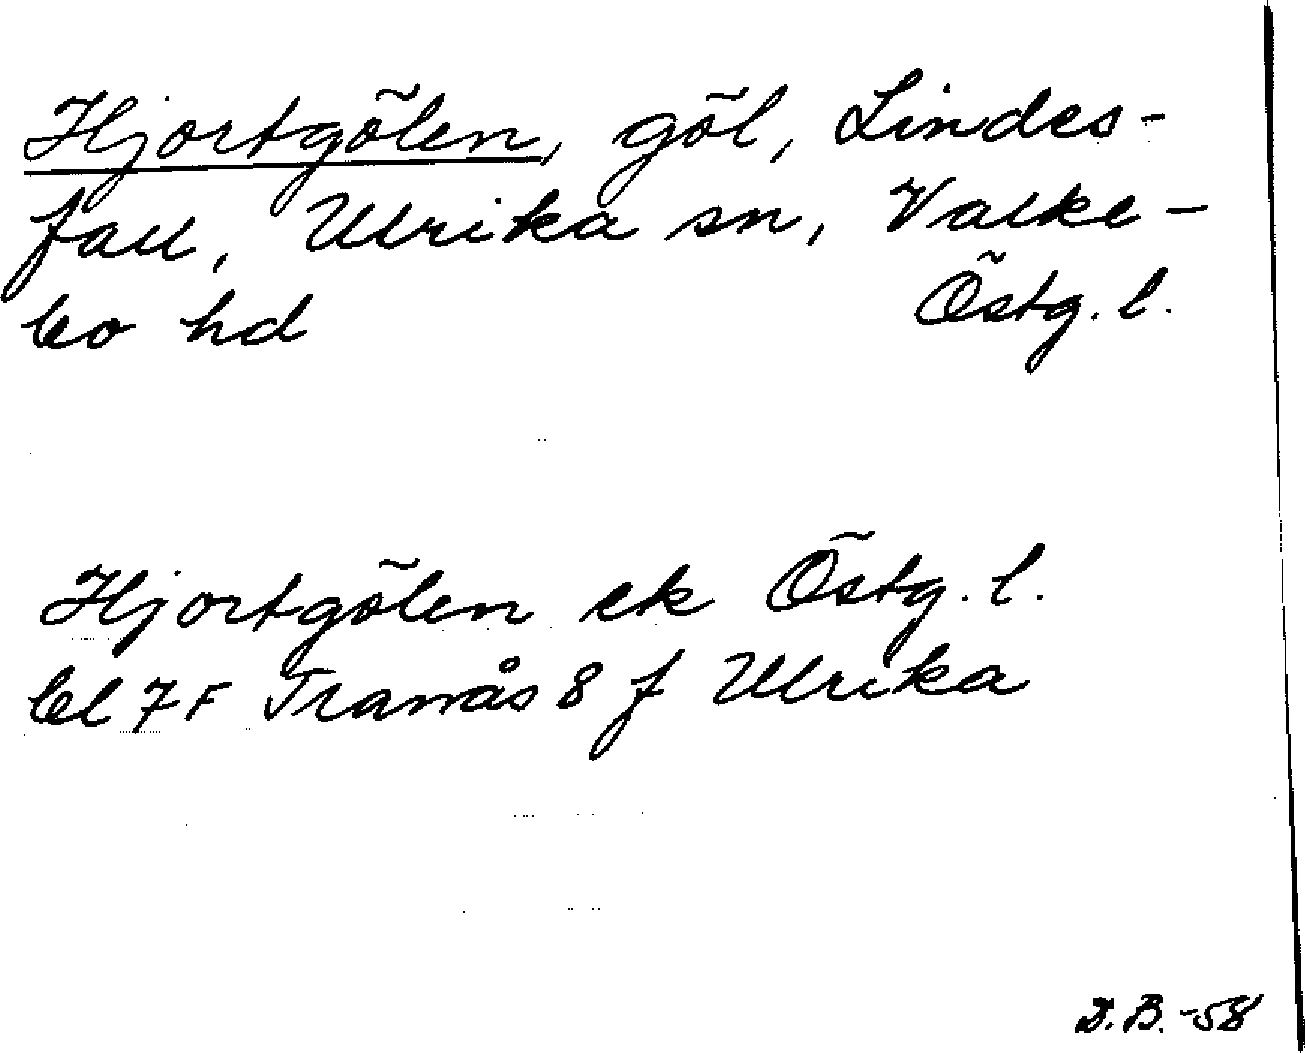 Hjortgölen, göl, Lindes-
fall, Ulrika sn, Valke-
bo hd Östg. l.
Hjortgölen ek Östg. l.
bl 7F Tranås 8 f Ulrika
D.B.-58